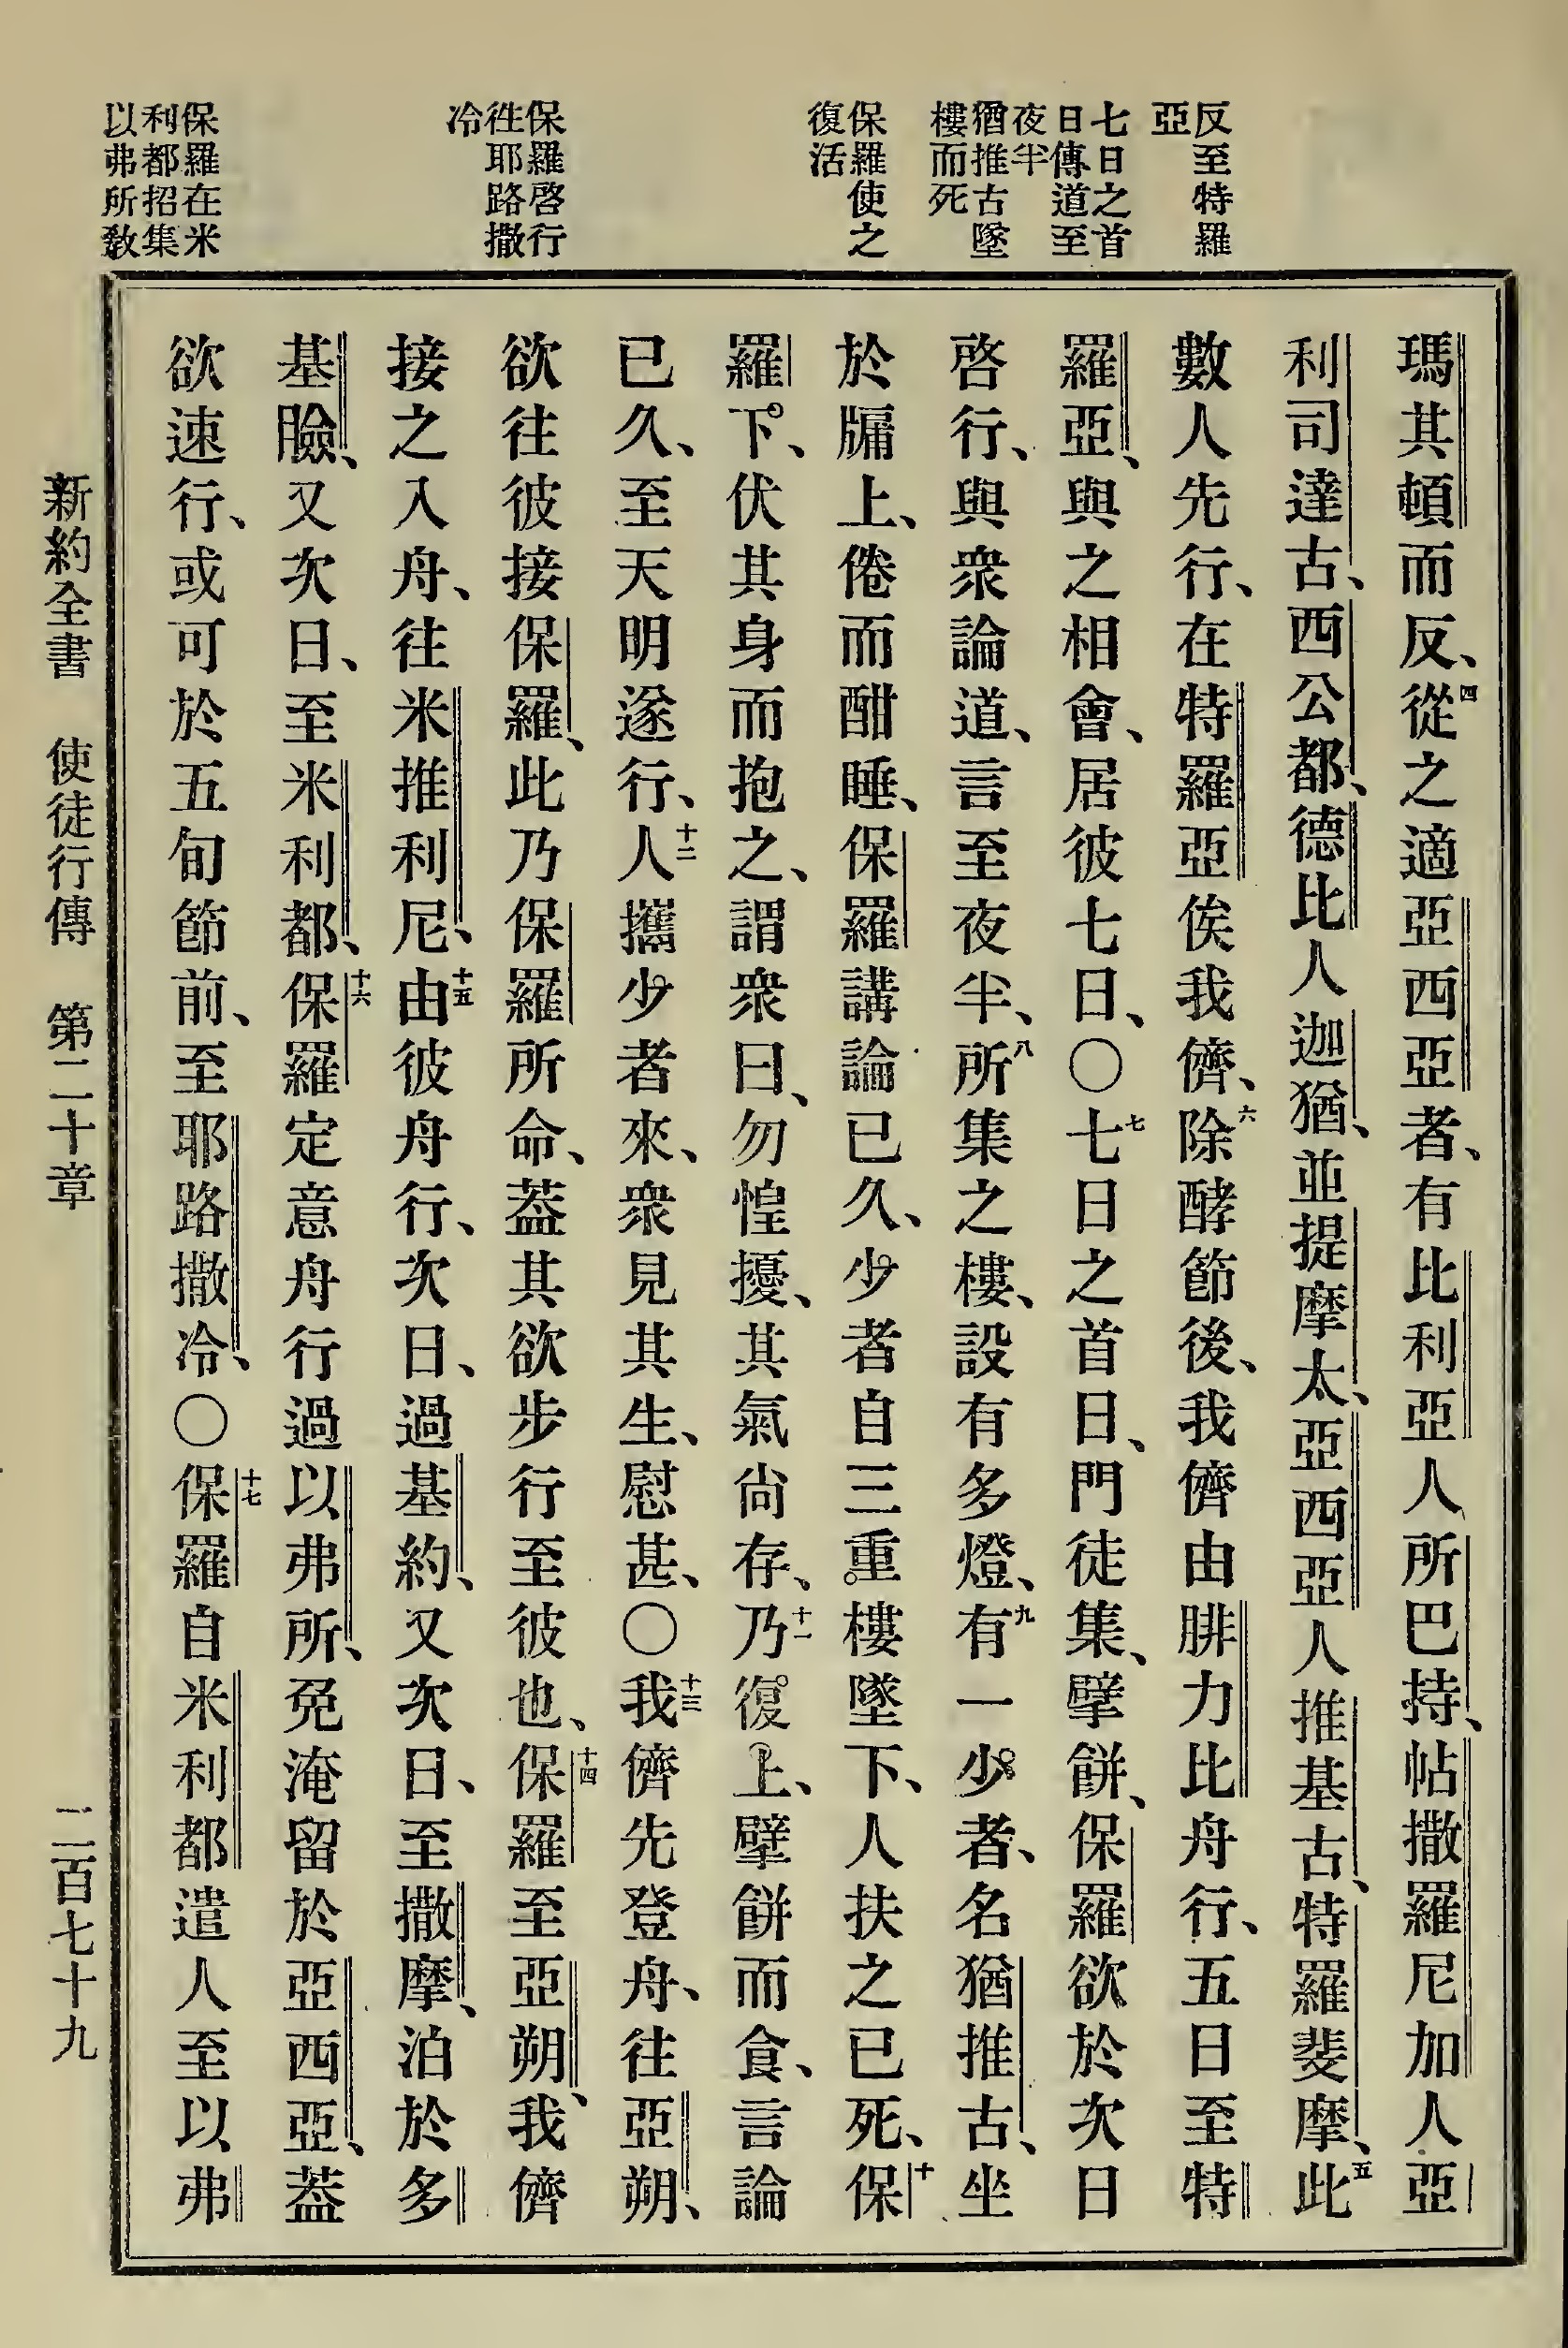 反至特羅
亞
七日之首
日傳道至
夜半
猶推古墜
樓而死
保羅使之
復活
保羅啓行
徃耶路撒
冷
保羅在米
利都招集
以弗所敎
瑪其頓而反、四從之適亞西亞者、有比利亞人所巴持、帖撒羅尼加人亞
利司達古、西公都、德比人迦猶、並提摩太、亞西亞人推基古、特羅斐摩、五此
數人先行、在特羅亞俟我儕、六除酵節後、我儕由腓力比舟行、五日至特
羅亞、與之相會、居彼七日、〇七七日之首日、門徒集、擘餅、保羅欲於次日
啓行、與衆論道、言至夜半、八所集之樓、設有多燈、九有一少者、名猶推古、坐
於牖上、倦而酣睡、保羅講論已久、少者自三重樓墜下、人扶之已死、十保
羅下、伏其身而抱之、謂衆曰、勿惶擾、其氣尙存、十一乃復上、擘餅而食、言論
已久、至天明遂行、十二人攜少者來、衆見其生、慰甚、〇十三我儕先登舟、往亞朔、
欲往彼接保羅、此乃保羅所命、葢其欲步行至彼也、十四保羅至亞朔、我儕
接之入舟、往米推利尼、十五由彼舟行、次日、過基約、又次日、至撒摩、泊於多
基臉、又次日、至米利都、十六保羅定意舟行過以弗所、免淹留於亞西亞、葢
欲速行、或可於五旬節前、至耶路撒冷、〇十七保羅自米利都遣人至以弗
新約全書　使徒行傳　第二十章　二百七十九